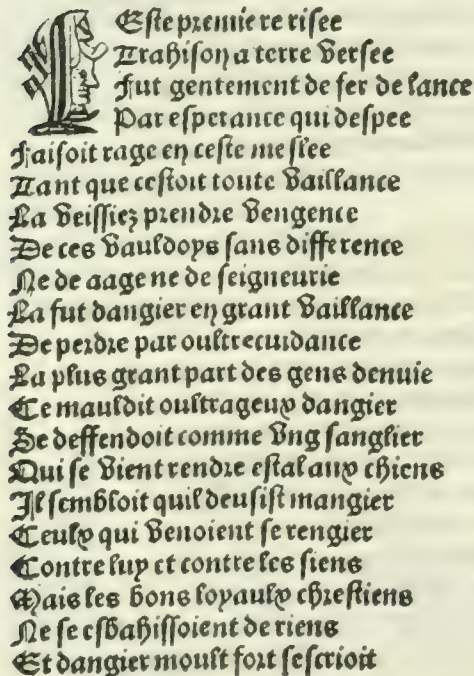 Ceste premiere risee
Trahison a terre versee
Fut gentement de fer de lance
Par esperance qui despee
Faisoit rage en ceste meslee
Tant que cestoit toute vaillance
La veissiez prendre vengence
De ces vauldoys sans difference
Ne de aage ne de seigneurie
La fut dangier en grant vaillance
De perdre par oultrecuidance
La plus grant part des gens denuie
Ce mauldit oultrageux dangier
Se deffendoit comme vng sanglier
Qui se vient rendre estal aux chiens
Il sembloit quil deusist mangier
Ceulx qui venoient se rengier
Contre luy et contre les siens
Mais les bons loyaulx chrestiens
Ne se esbahissoient de riens
Et dangier moult fort sescrioit